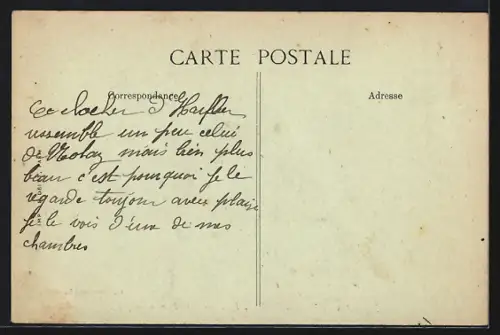 CARTE POSTALE
Correspondance
Adresse
Ce clocher d'Harfleur
ressemble un peu celui
de mais bien plus
beau c'est pourquoi je le
regarde toujour avec plaisir
je le vois d'une de mes
chambres